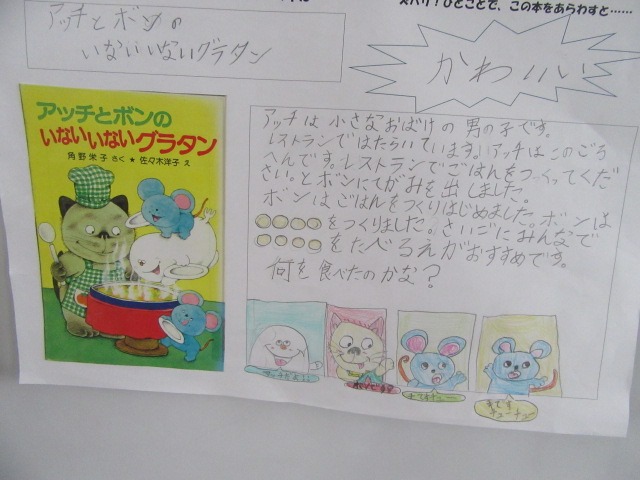 ズバリ！ひとことで、この本をあらわすと……
アッチとボンの
いないいないグラタン
かわいい
アッチとボンの
いないいないグラタン
角野栄子 さく ★ 佐々木洋子 え
アッチは小さなおばけの男の子です。
レストランではたらいています。アッチはこのごろ
へんです。レストランでごはんをつくってくだ
さい。とボンにてがみを出しました。
ボンはごはんをつくりはじめました。ボンは
○○○○をつくりました。さいごにみんなで
○○○○をたべるえがおすすめです。
何を食べたのかな？